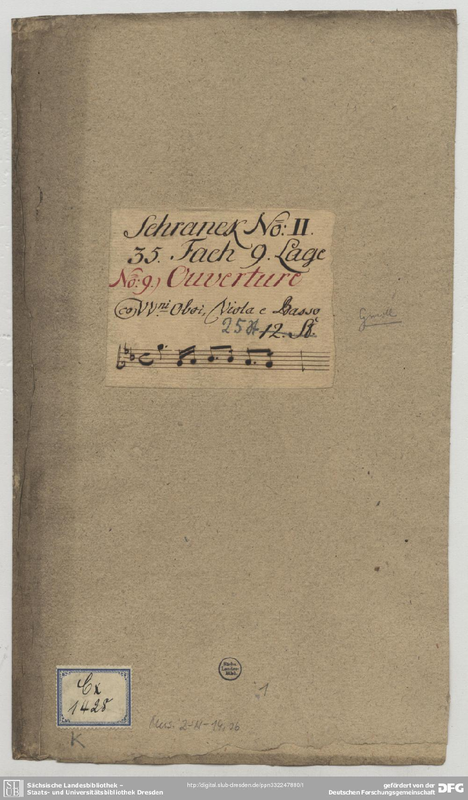 Schranck No: II.
35. Fach 9. Lage
No: 9.) Ouverture
co VVni Oboi, Viola e Basso
25 St 12. St.
Ex
1428
1
K
Mus. 2-N-14,76
Sächsische Landesbibliothek –
Staats- und Universitätsbibliothek Dresden
http://digital.slub-dresden.de/ppn332247890/1
gefördert von der
Deutschen Forschungsgemeinschaft
DFG